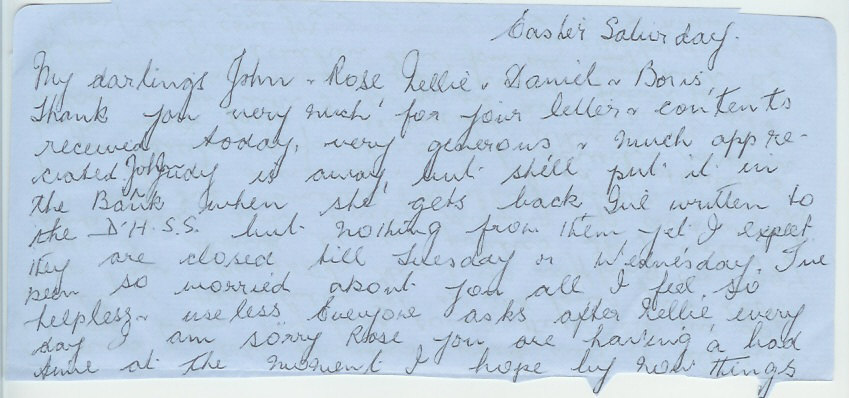 Easter Saturday.
My darlings John & Rose Nellie & Daniel & Boris,
Thank you very much for your letter & contents
received today, very generous & much appre-
ciated John Judy is away but she'll put it in
the Bank when she gets back I've written to
the D.H.S.S. but nothing from them yet I expect
they are closed till Tuesday or Wednesday. I've
been so worried about you all I feel so
helpless & useless Everyone asks after Nellie every
day I am sorry Rose you are having a bad
time at the moment I hope by now things